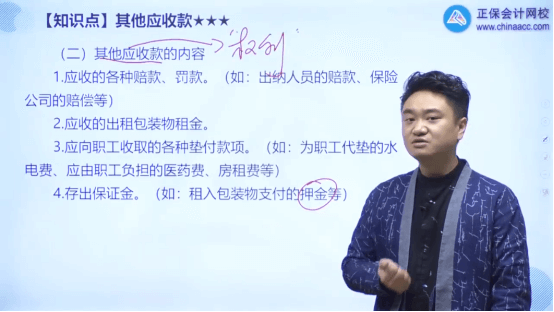 【知识点】其他应收款★★★
正保会计网校
www.chinaacc.com
(二)其他应收款的内容
"权利"
1.应收的各种赔款、罚款。(如：出纳人员的赔款、保险
公司的赔偿等)
2.应收的出租包装物租金。
3.应向职工收取的各种垫付款项。(如：为职工代垫的水
电费、应由职工负担的医药费、房租费等)
4.存出保证金。(如：租入包装物支付的押金等)